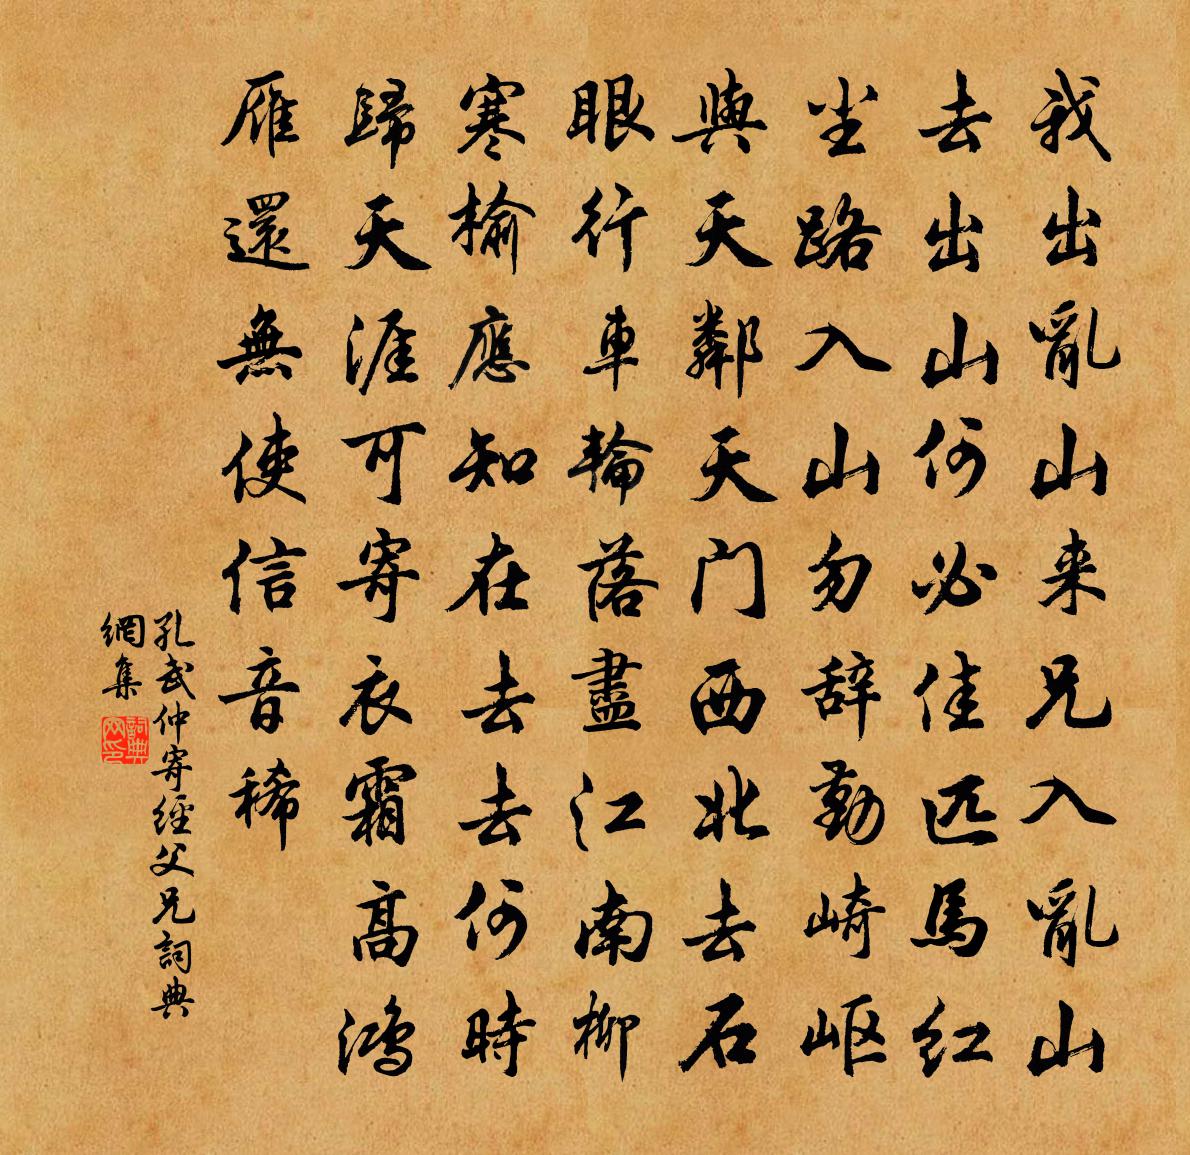 我出亂山来兄入亂山
去出山何必佳匹馬红
尘路入山勿辞勤崎岖
與天鄰天门西北去石
眼行車輪落盡江南柳
寒榆應知在去去何時
歸天涯可寄衣霜高鴻
雁還無使信音稀
孔武仲寄經父兄詞典
網集